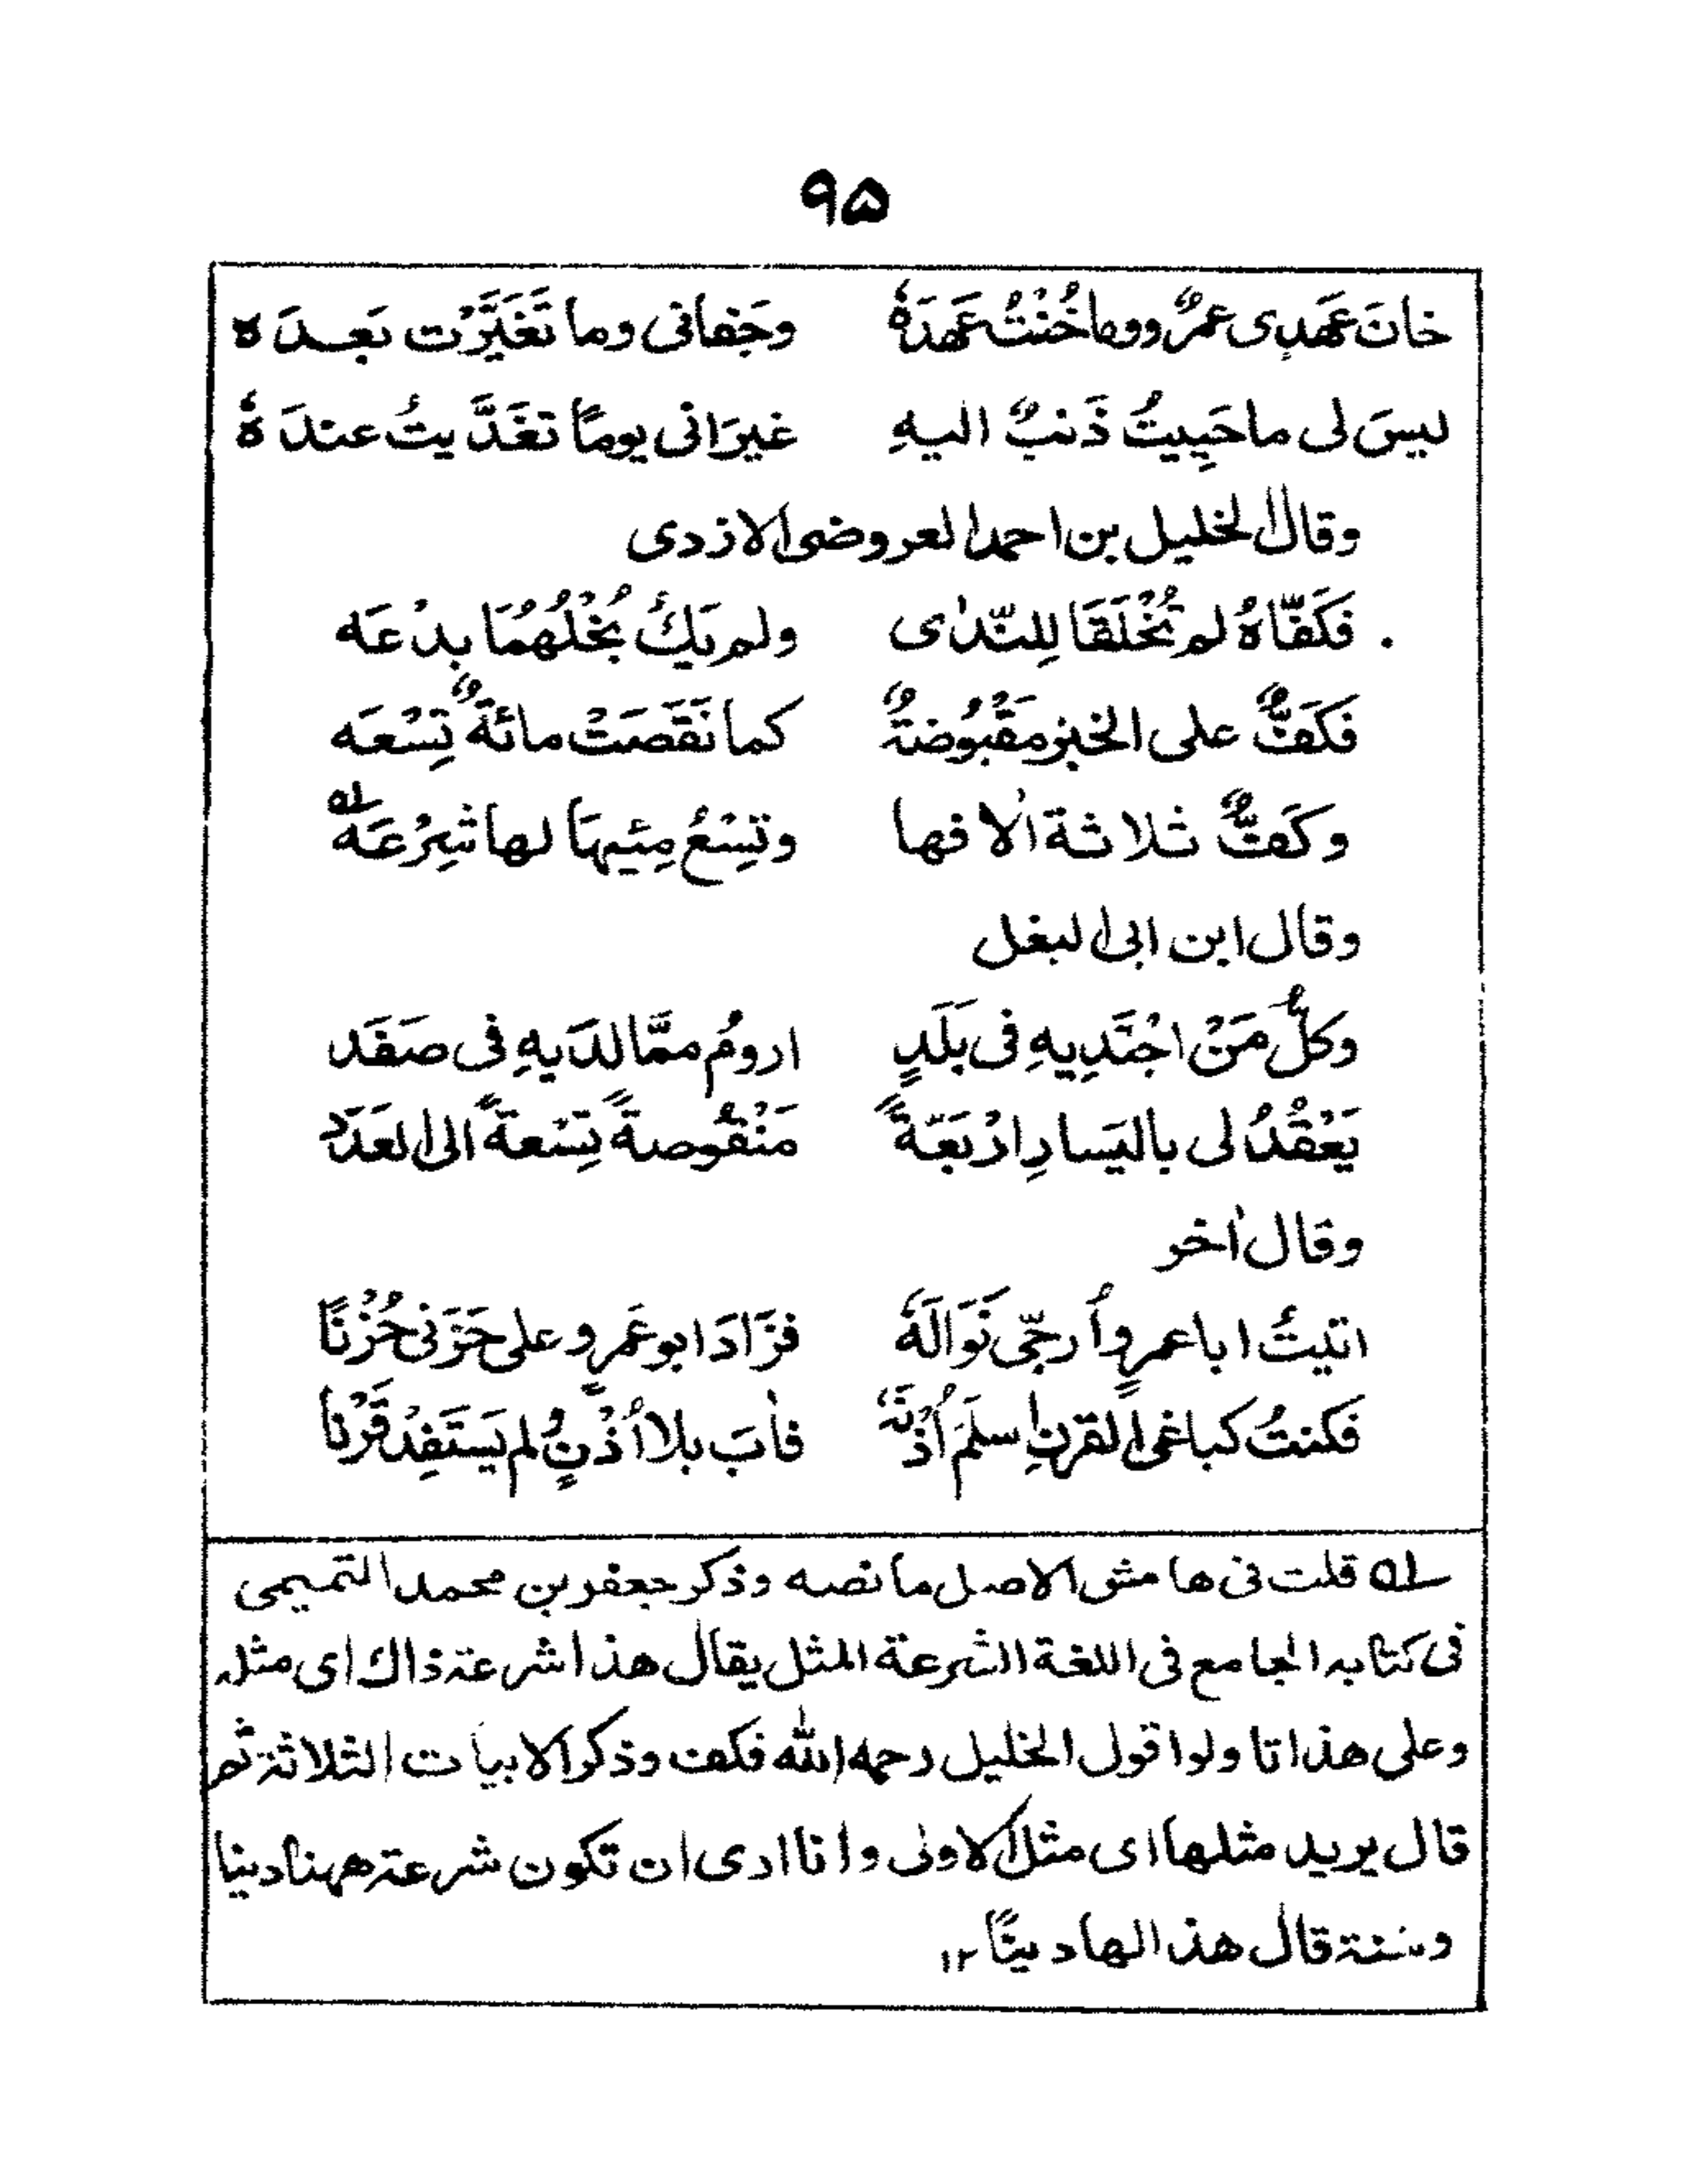 ۹۵
خانَ عَهدِی عمرٌو وما خُنْتُ عَهدَهٗ وجَفانی وما تَغَیَّرْت بَعدَه
لیسَ لی ما حَیِیتُ ذَنبٌ الیهِ غیرَ انی یومًا تغَدَّیتُ عندَهٗ
وقال الخلیل بن احمد العروضی الازدی
. فکَفَّاهُ لم تُخْلَقَا لِلنّدٰی ولم یَكُ بُخْلُهُمَا بِدْعَه
فکَفٌّ علی الخیر مَقْبُوضةٌ کما نَقَصَتْ مائةٌ تِسْعَه
وکَفٌّ ثلاثة اٰلافها وتِسْعُ مِئیهَا لها شِرْعَه ؎۱
وقال ابن ابی البغل
وکلُّ مَنْ اجْتَدِیهِ فی بَلَدٍ ارومُ ممَّا لدَیهِ فی صَفَد
یَعْقُدُ لی بالیَسارِ ارْبَعَةً مَنْقُوصةً تِسْعةً الی العَدَد
وقال اٰخر
اتیتُ ابا عمرٍو اُرجّی نَوَالَهٗ فزَادَ ابو عَمرٍو علی حَزَنی حُزْنًا
فکنتُ کباغی القرنِ اسلَمَ اُذْنَهٗ فاٰبَ بلا اُذْنٍ ولم یَستَفِدْ قَرْنا
؎۱ قلت فی هامش الاصل ما نصه وذکر جعفر بن محمد التمیمی
فی کتابه الجامع فی اللغة الشرعة المثل یقال هذا شرعة ذاك ای مثله
وعلی هذا تاولوا قول الخلیل رحمه الله فکف وذکر الابیات الثلاثة ثم
قال یرید مثلها ای مثل الاولٰی وانا اری ان تکون شرعة ههنا دینا
وسنة قال هذا لها دینًا ۱۲